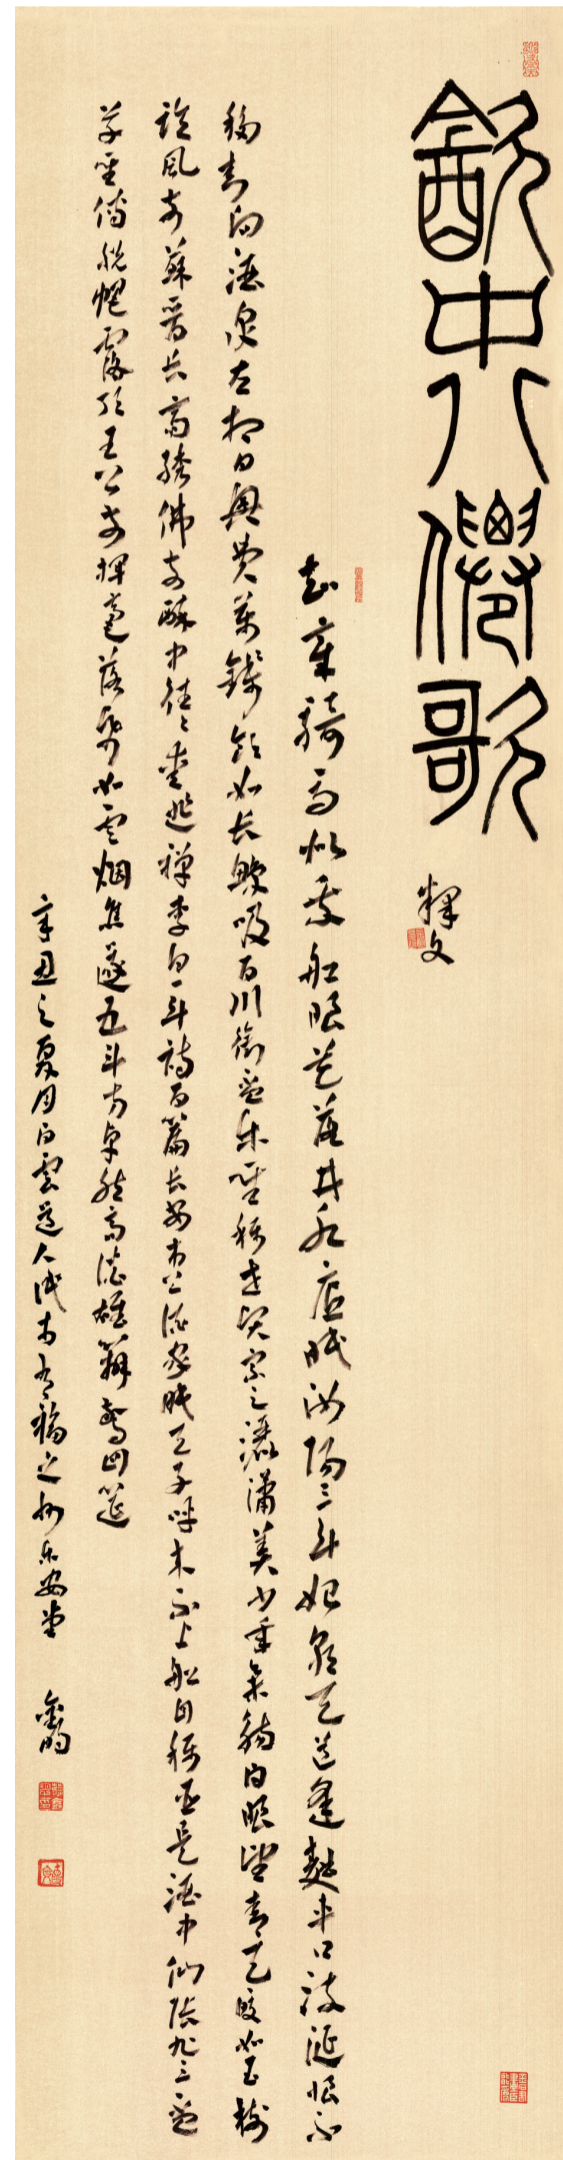 飲中八僊歌
釋文
知章騎馬似乘船眼花落井水底眠汝陽三斗始朝天道逢麴車口流涎恨不
移封向酒泉左相日興費萬錢飲如長鯨吸百川銜盃樂聖稱世賢宗之灑瀟美少年舉觴白眼望青天皎如玉樹
臨風前蘇晉長齋繡佛前醉中往〻愛逃禪李白一斗詩百篇長安市上酒家眠天子呼來不上船自稱臣是酒中仙張旭三盃
草聖傳脫帽露頂王公前揮毫落紙如雲烟焦遂五斗方卓然高談雄辯驚四筵
辛丑之夏月白雲道人